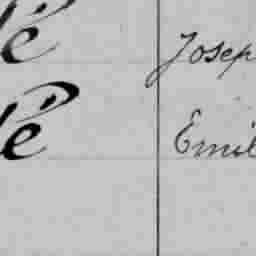 é Josep
é Emil